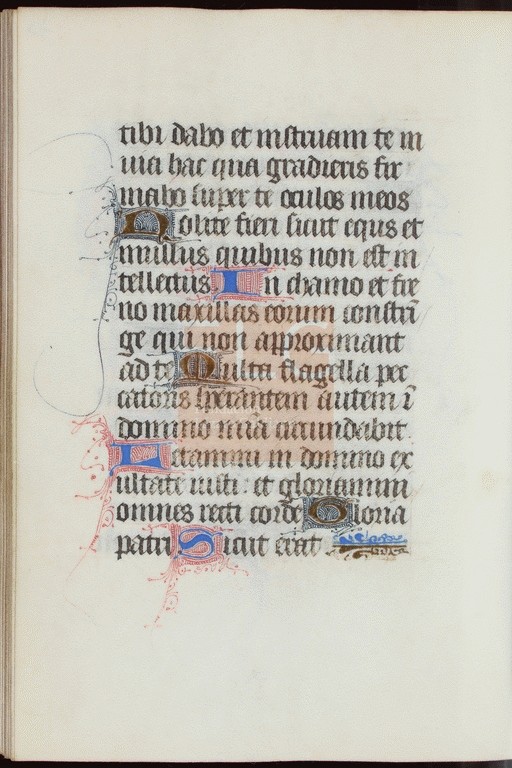 tibi dabo et instruam te in
uia hac qua gradieris fir
mabo super te oculos meos
Nolite fieri sicut equs et
mulus quibus non est in
tellectus In chamo et fre
no maxillas eorum constrī
ge qui non approximant
ad te Multa flagella pec
catoris sperantem autem ī
domino mīa circumdabit
Letamini in domino ex
ultate iusti et gloriamini
omnes recti corde Gloria
patri Sicut erat